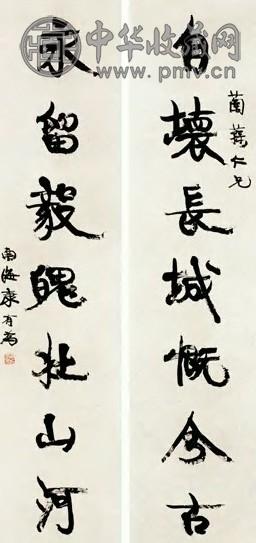 中华收藏网
www.pmv.cn
蘭蓀仁兄
自壞長城慨今古
永留毅魄壯山河
南海康有為